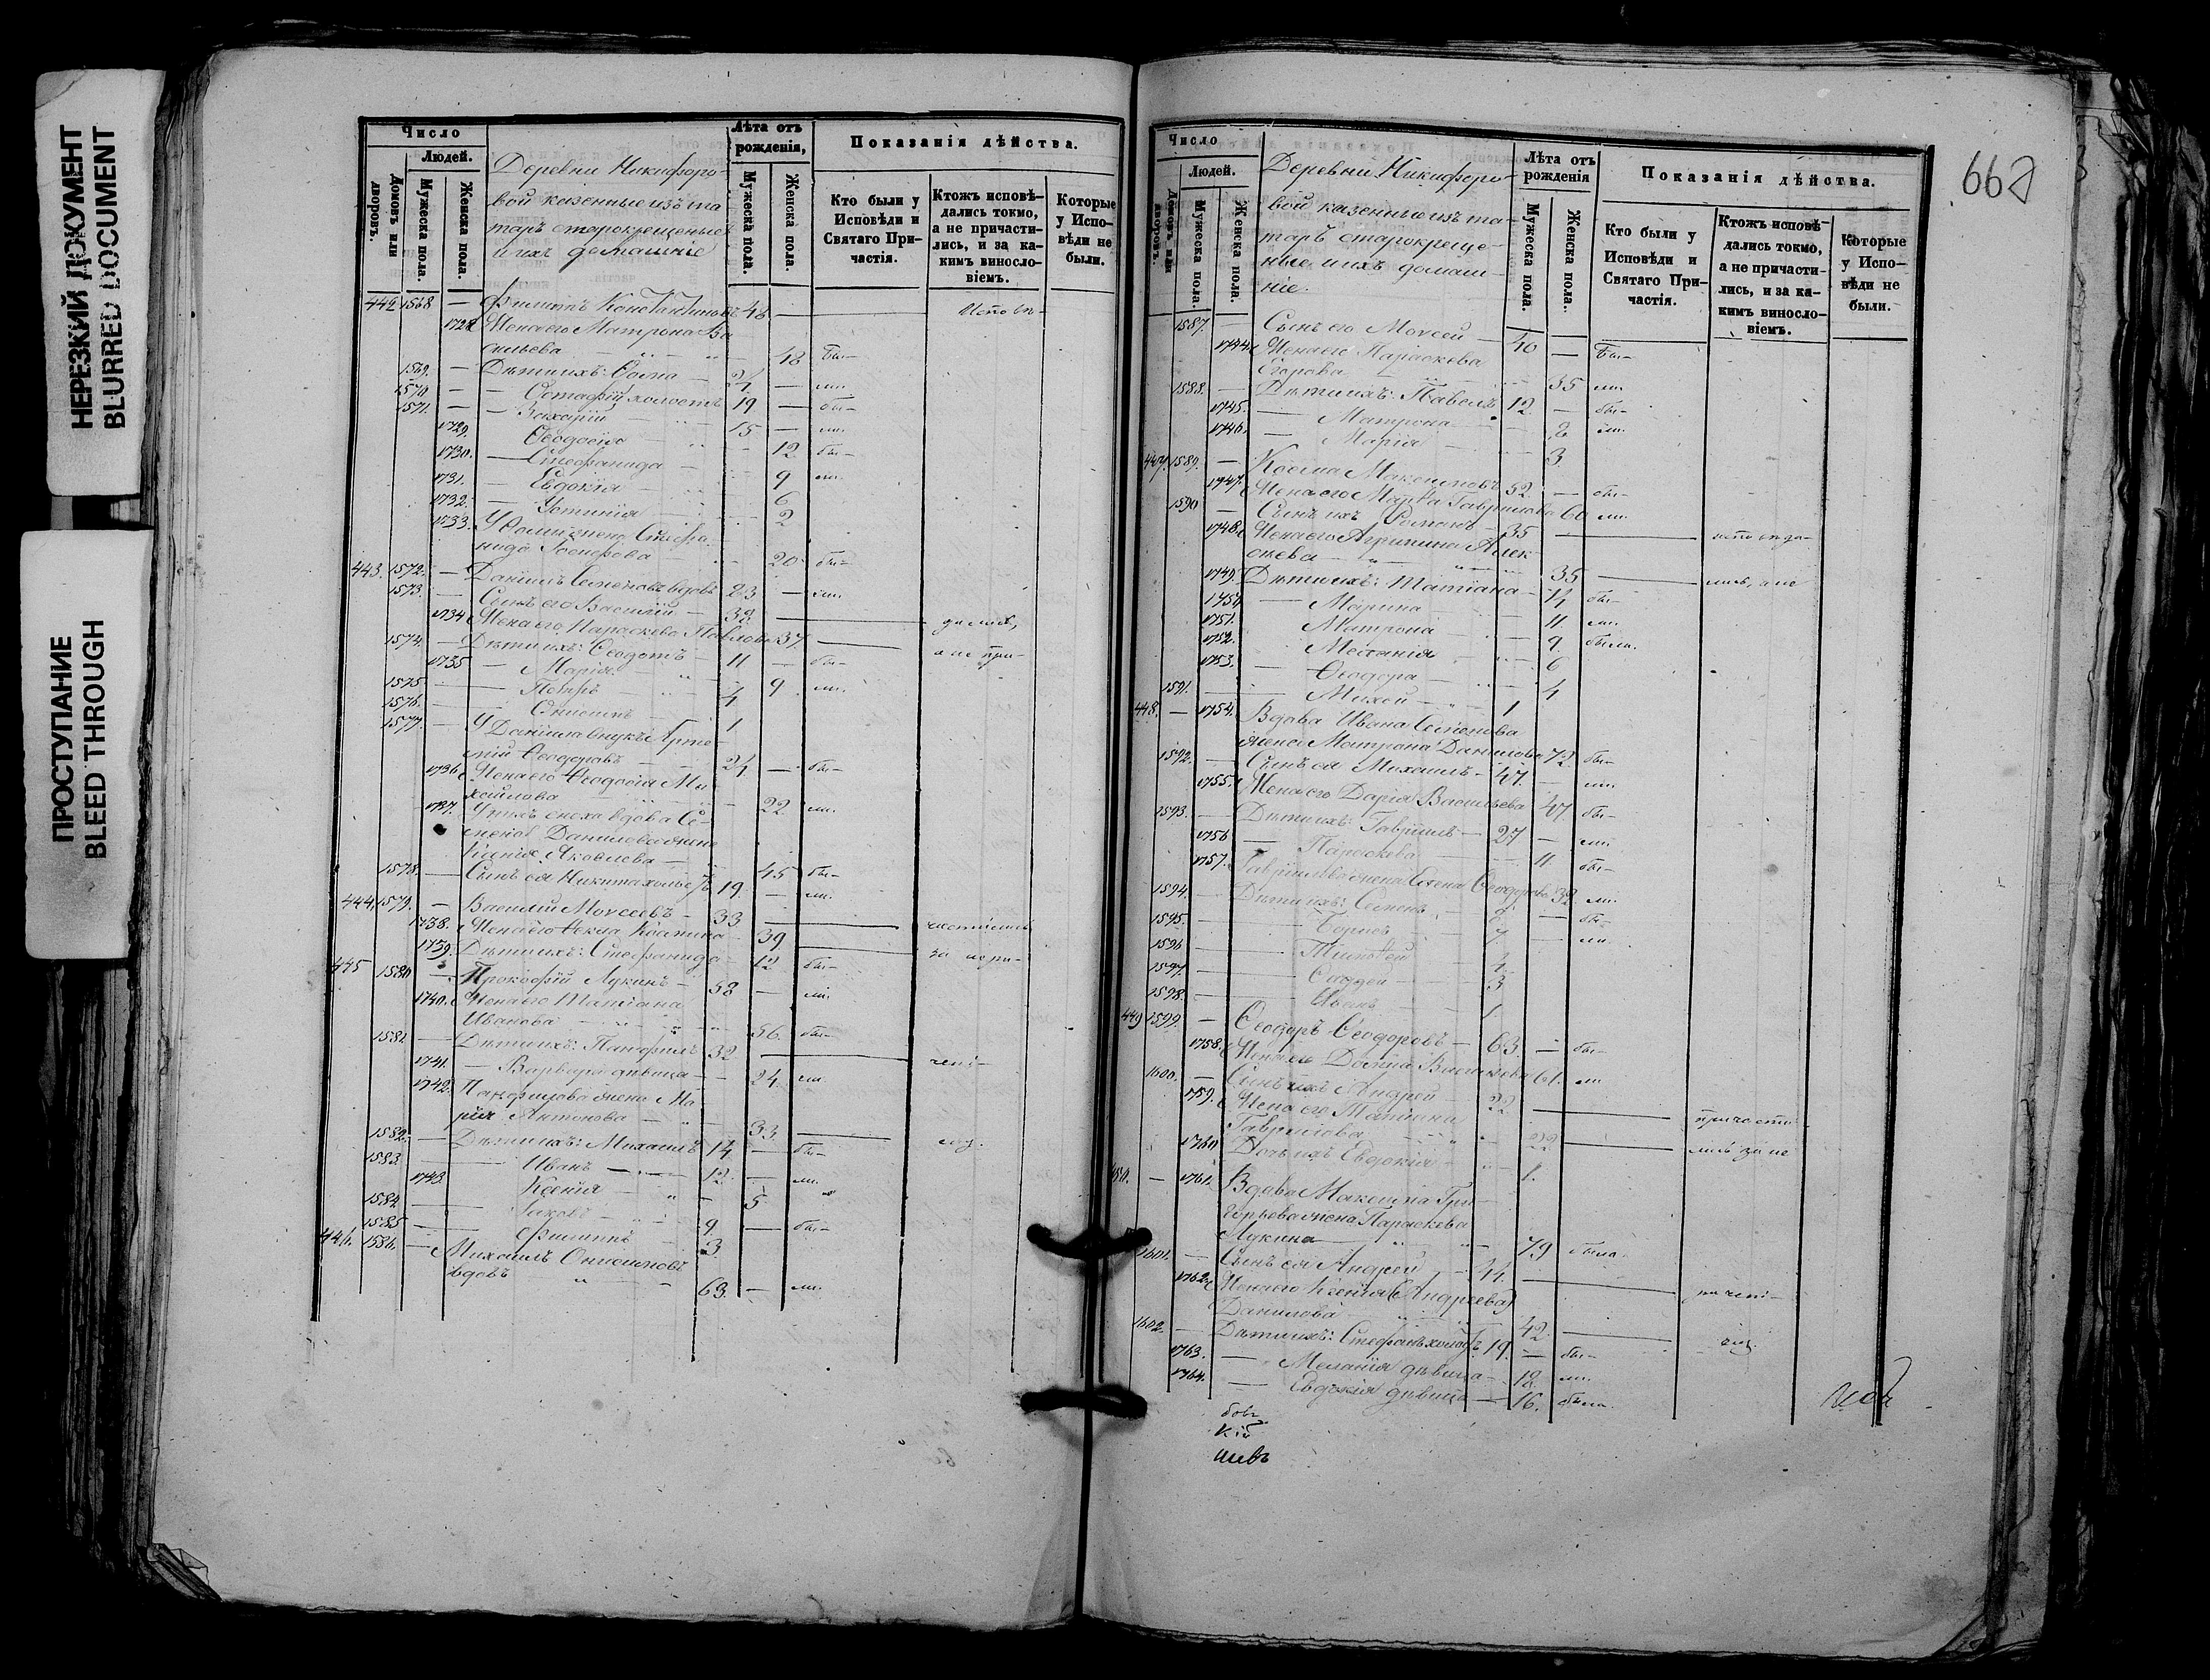 НЕРЕЗКИЙ ДОКУМЕНТ
BLURRED DOCUMENT
ПРОСТУПАНИЕ
BLEED THROUGH
Число
Людей.
Домовъ или дворовъ.
Мужеска пола.
Женска пола.
Деревни Никифоро-
вой казенные изъ та-
таръ старокрещеные
и ихъ домашніе
Лѣта отъ рожденія,
Мужеска пола.
Женска пола.
Показанія дѣйства.
Кто были у Исповѣди и Святаго При-частія.
Ктожъ исповѣ-дались токмо, а не причасти-лись, и за ка-кимъ винносло-віемъ.
Которые у Испо-вѣди не были.
442 1568 — Филиппъ Константиновъ 48 —
1728 Жена его Матрона Ва-
сильева 48 бы-
1569. — Дѣти ихъ: Ѳома — ли.
1570 — Остафій холостъ 19 — бы-
1571. — Захарій 15 — ли.
1729. Ѳеодосія 12 бы-
1730. — Стефанида 9 ли.
1731. — Евдокія 6
1732. — Устинія 2
1733. У Ѳомы жена Стефа-
нида 20 бы-
443. 1572. — Даніилъ Семеновъ вдовъ — ли.
1573. — Сынъ его Василій — 38
1734 Жена его Параскева Павлова 37 дались,
1574. — Дѣти ихъ: Ѳеодотъ — 11 — бы- а не при-
1735 — Марія 9 ли.
1575 — Петръ 4
1576. — Онисимъ 1
1577. — У Даніила внукъ Арте-
мій Ѳеодоровъ 24 — бы-
1736 Жена его Ѳеодосія Ми-
хайлова 22 ли.
1737. У нихъ сноха вдова Се-
мена Данилова жена
Ксенія Яковлева — 45 бы-
1578. — Сынъ ея Никита холостъ 19. — ли.
444. 1579. — Василій Моисеевъ — 33
1738. Жена его Ѳекла 39
1739. Дѣти ихъ: Стефанида 12 бы-
445 1580 — Прокофій Лукинъ — 58 — ли.
1740. Жена его Татіана
Иванова 56. бы-
1581. — Дѣти ихъ: Панфилъ 32
1741. — Варвара дѣвица — 24 ли
1742. Панфилова жена Ма-
рія Антонова — 33.
1582. — Дѣти ихъ: Михаилъ 14 — бы-
1583. — Иванъ — 12 — ли.
1743. Ксенія — 5
1584 — Іаковъ — 9. — бы-
1585 — Филиппъ — 3
446. 1586. — Михаилъ Онисимовъ
вдовъ 63. — ли.
662
Число
Людей.
Домовъ или дворовъ.
Мужеска пола.
Женска пола.
Деревни Никифоро-
вой казенные изъ та-
таръ старокреще-
ные и ихъ домаш-
ніе.
Лѣта отъ рожденія
Мужеска пола.
Женска пола.
Показанія дѣйства.
Кто были у Исповѣди и Святаго При-частія.
Ктожъ исповѣ-дались токмо, а не причасти-лись, и за ка-кимъ винносло-віемъ.
Которые у Испо-вѣди не были.
1587. — Сынъ его Моисей — 40 — бы-
1744. Жена его Параскева
Егорова 35 ли.
1588. — Дѣти ихъ: Павелъ 12. — бы-
1745. — Матрона ли.
1746. — Марія 3.
447. 1589. — Косма Максимовъ 52. — бы-
1747. Жена его Марѳа Гаврилова 60 ли.
1590 — Сынъ ихъ Романъ — 35
1748. Жена его Агрипина Алек-
сиева 35
1749 Дѣти ихъ: Татіана — 14 бы-
1750 — Марина 11 ли.
1751. Матрона 9. была.
1752. Меланія 6
1753. — Ѳеодора — 4
1591. — Михей 1
448. — 1754. Вдова Ивана Семенова
жена Матрона Данилова 72 бы-
1592. — Сынъ ея Михаилъ — 47. — ли
1755. Жена его Дарія Васильева 47 бы-
1593. — Дѣти ихъ: Гавріилъ — 27 — ли
1756 — Параскева 11 бы-
1757. Гавріилова жена Елена Ѳеодорова 32 ли.
1594. — Дѣти ихъ: Семенъ — бы-
1595. — Борисъ — 7 — ли.
1596 — Тимоѳей 4
1597. — Ѳаддей — 3
1598. — Иванъ 1.
449 1599. — Ѳеодоръ Ѳеодоровъ — 63 — бы-
1758. Жена его Домна Васильева 61. ли
1600. — Сынъ ихъ Андрей — 22
1759. Жена его Матрона
Гаврилова 22
1760 Дочь ихъ Евдокія 1.
450. — 1761. Вдова Максима Гри-
горьева жена Параскева
Лукина 79 была.
1601. — Сынъ ея Андрей — 44.
1762. Жена его Ксенія (Андреева)
Данилова 42
1602. — Дѣти ихъ: Стефанъ холостъ 19. — бы-
1763. — Меланія дѣвица — 18. ли.
1764. — Евдокія дѣвица — 16. была.